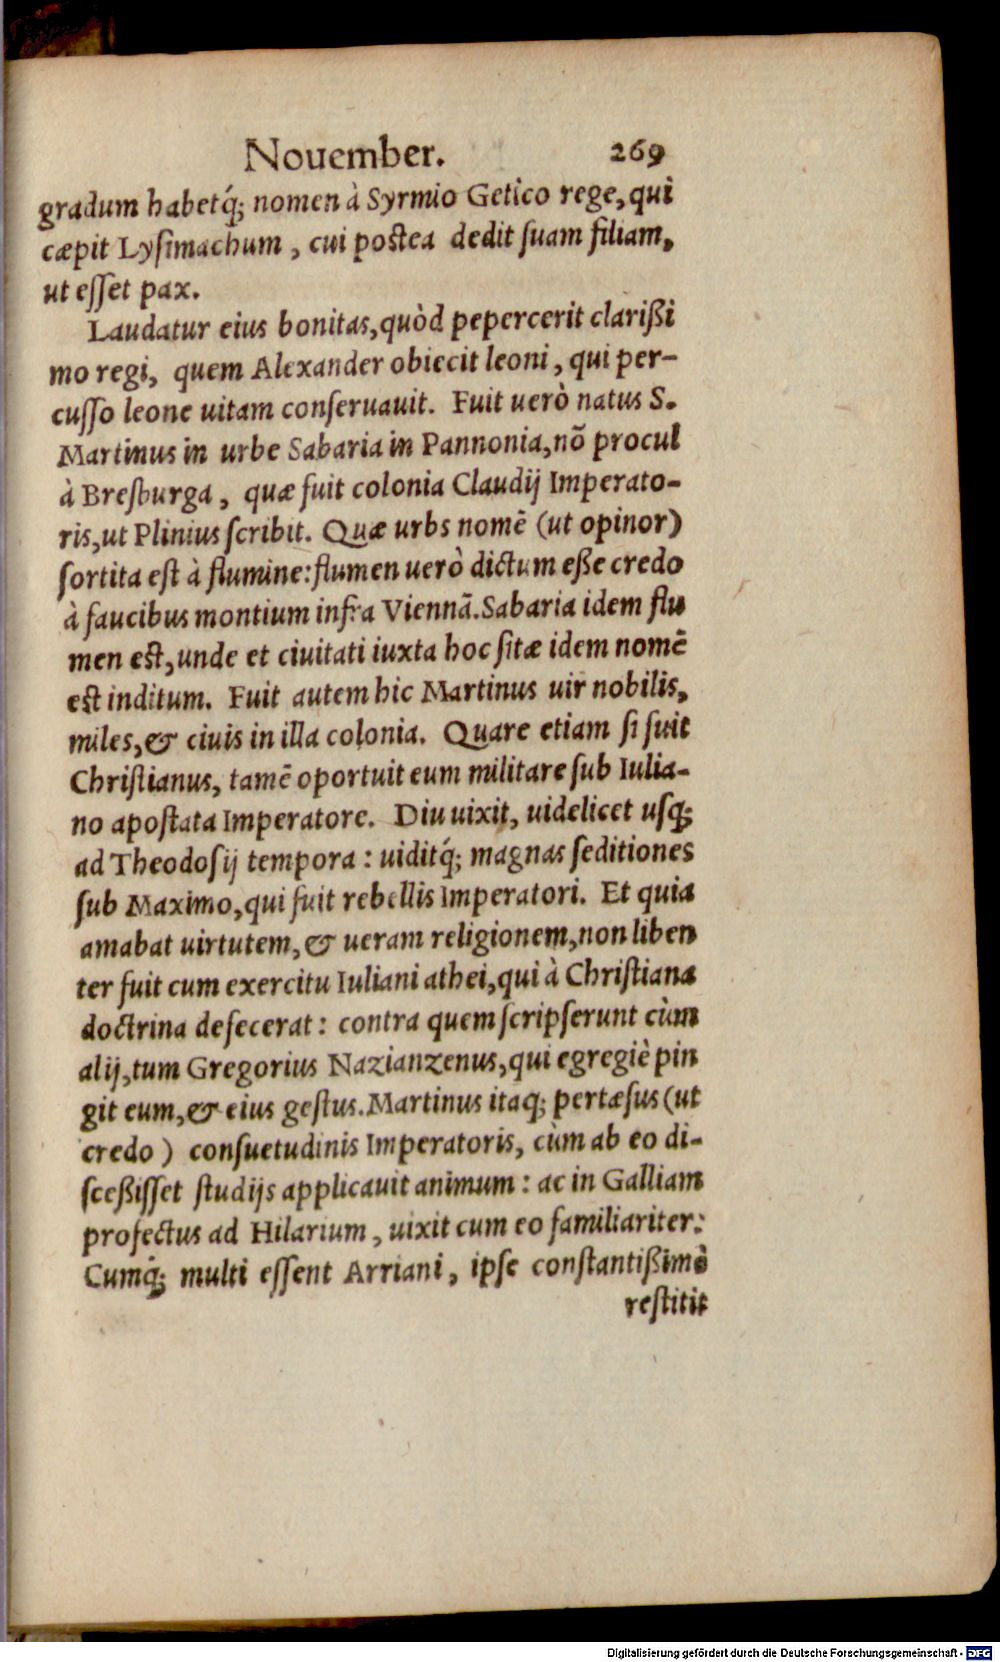 Nouember. 269
gradum habetq́; nomen à Syrmio Getico rege, qui
cæpit Lysimachum, cui postea dedit suam filiam,
ut esset pax.
Laudatur eius bonitas, quòd pepercerit clarißi
mo regi, quem Alexander obiecit leoni, qui per-
cusso leone uitam conseruauit. Fuit uerò natus S.
Martinus in urbe Sabaria in Pannonia, nõ procul
à Bresburga, quæ fuit colonia Claudij Imperato-
ris, ut Plinius scribit. Quæ urbs nomẽ (ut opinor)
sortita est à flumine: flumen uerò dictum eße credo
à faucibus montium infra Viennã. Sabaria idem flu
men est, unde et ciuitati iuxta hoc sitæ idem nomẽ
est inditum. Fuit autem hic Martinus uir nobilis,
miles, & ciuis in illa colonia. Quare etiam si fuit
Christianus, tamẽ oportuit eum militare sub Iulia-
no apostata Imperatore. Diu uixit, uidelicet usq;
ad Theodosij tempora: uiditq́; magnas seditiones
sub Maximo, qui fuit rebellis Imperatori. Et quia
amabat uirtutem, & ueram religionem, non liben
ter fuit cum exercitu Iuliani athei, qui à Christiana
doctrina defecerat: contra quem scripserunt cùm
alij, tum Gregorius Nazianzenus, qui egregiè pin
git eum, & eius gestus. Martinus itaq; pertæsus (ut
credo) consuetudinis Imperatoris, cùm ab eo di-
sceßisset studijs applicauit animum: ac in Galliam
profectus ad Hilarium, uixit cum eo familiariter:
Cumq́; multi essent Arriani, ipse constantißimè
restitit
Digitalisierung gefördert durch die Deutsche Forschungsgemeinschaft - DFG